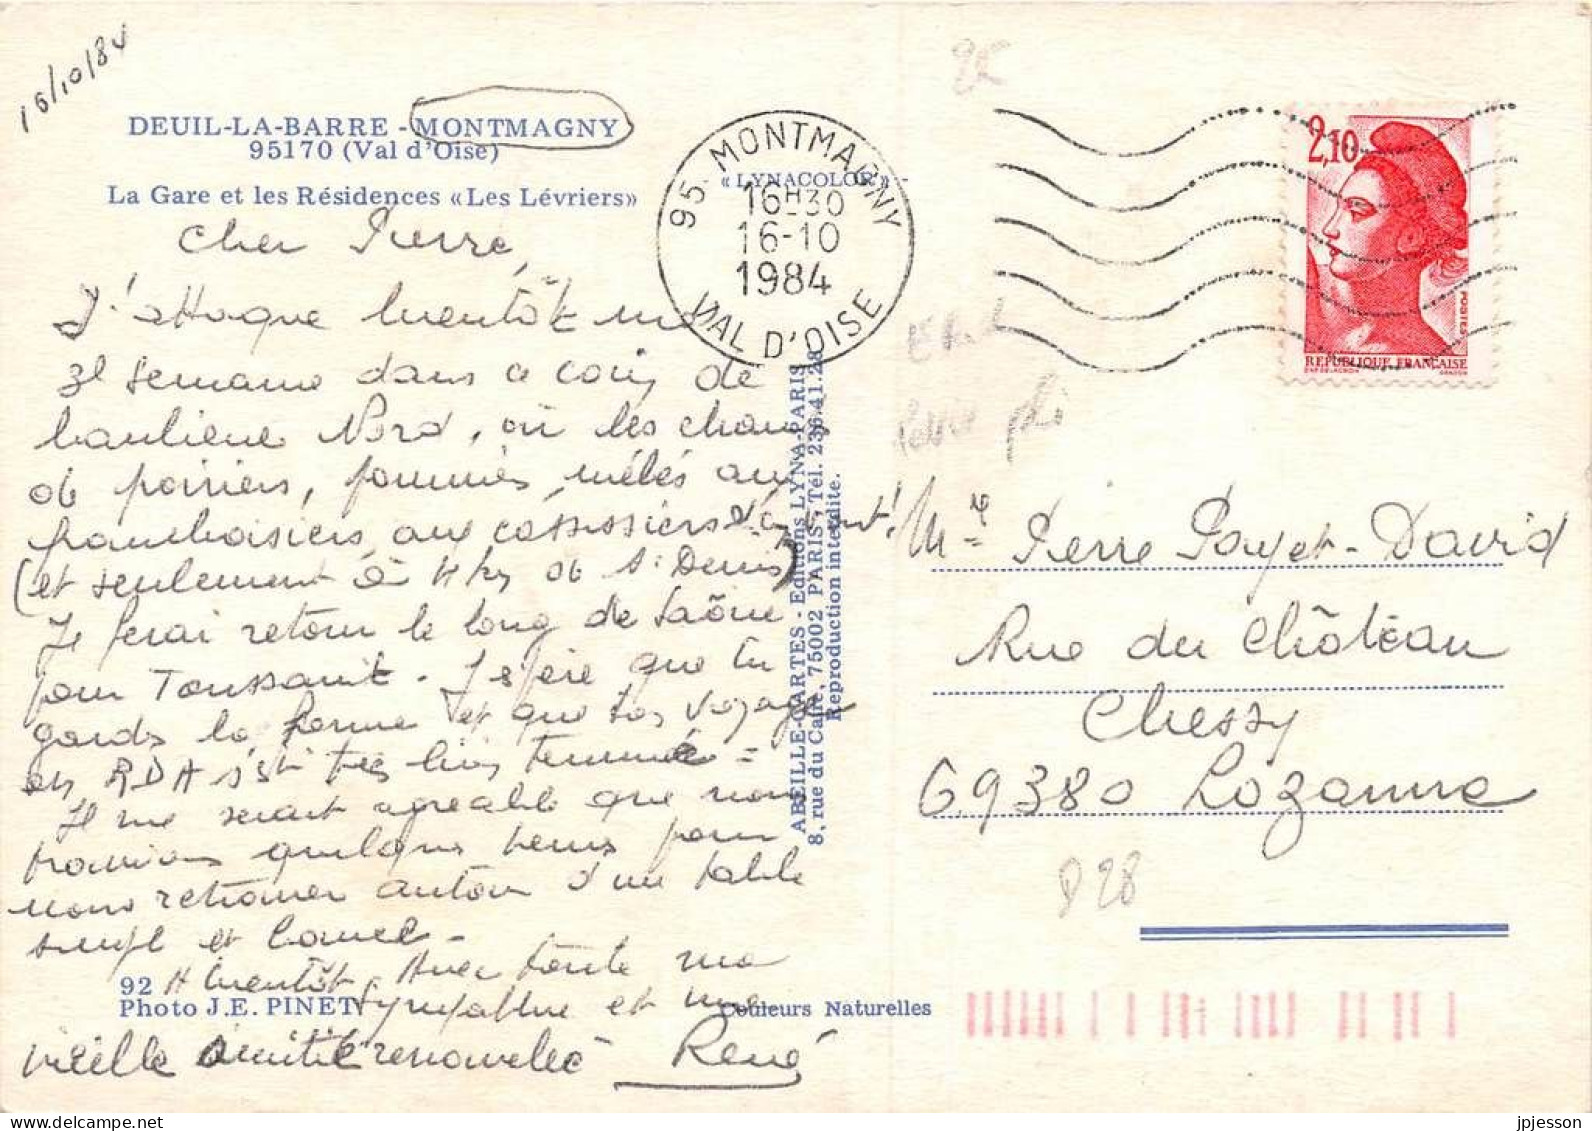 16/10/84
DEUIL-LA-BARRE - MONTMAGNY
95170 (Val d'Oise)
La Gare et les Résidences «Les Lévriers»
Cher Pierre,
J'attaque bientôt ma
3e semaine dans ce coin de
banlieue Nord, où les champs
de poiriers, pommiers, mêlés aux
framboisiers, aux cassissiers
(et seulement à 4 km de St Denis)
Je ferai retour le long de Saône
pour Toussaint. J'espère que tu
gardes la forme et que ton voyage
en RDA s'est très bien terminé =
Il me serait agréable que nous
trouvions quelque temps pour
nous retrouver autour d'une table
simple et bonne.
A bientôt. Avec toute ma
sympathie et une
vieille amitié renouvelée
René
92
Photo J.E. PINET
Couleurs Naturelles
«LYNACOLOR»
95 MONTMAGNY
16H30
16-10
1984
VAL D'OISE
ABEILLE-CARTES - Editions LYNA-PARIS
8, rue du Caire, 75002 PARIS - Tél. 236.41.28
Reproduction interdite.
2,10
POSTES
REPUBLIQUE FRANÇAISE
Pierre Poyet-David
Rue du Château
Chessy
69380 Lozanne
jpjesson